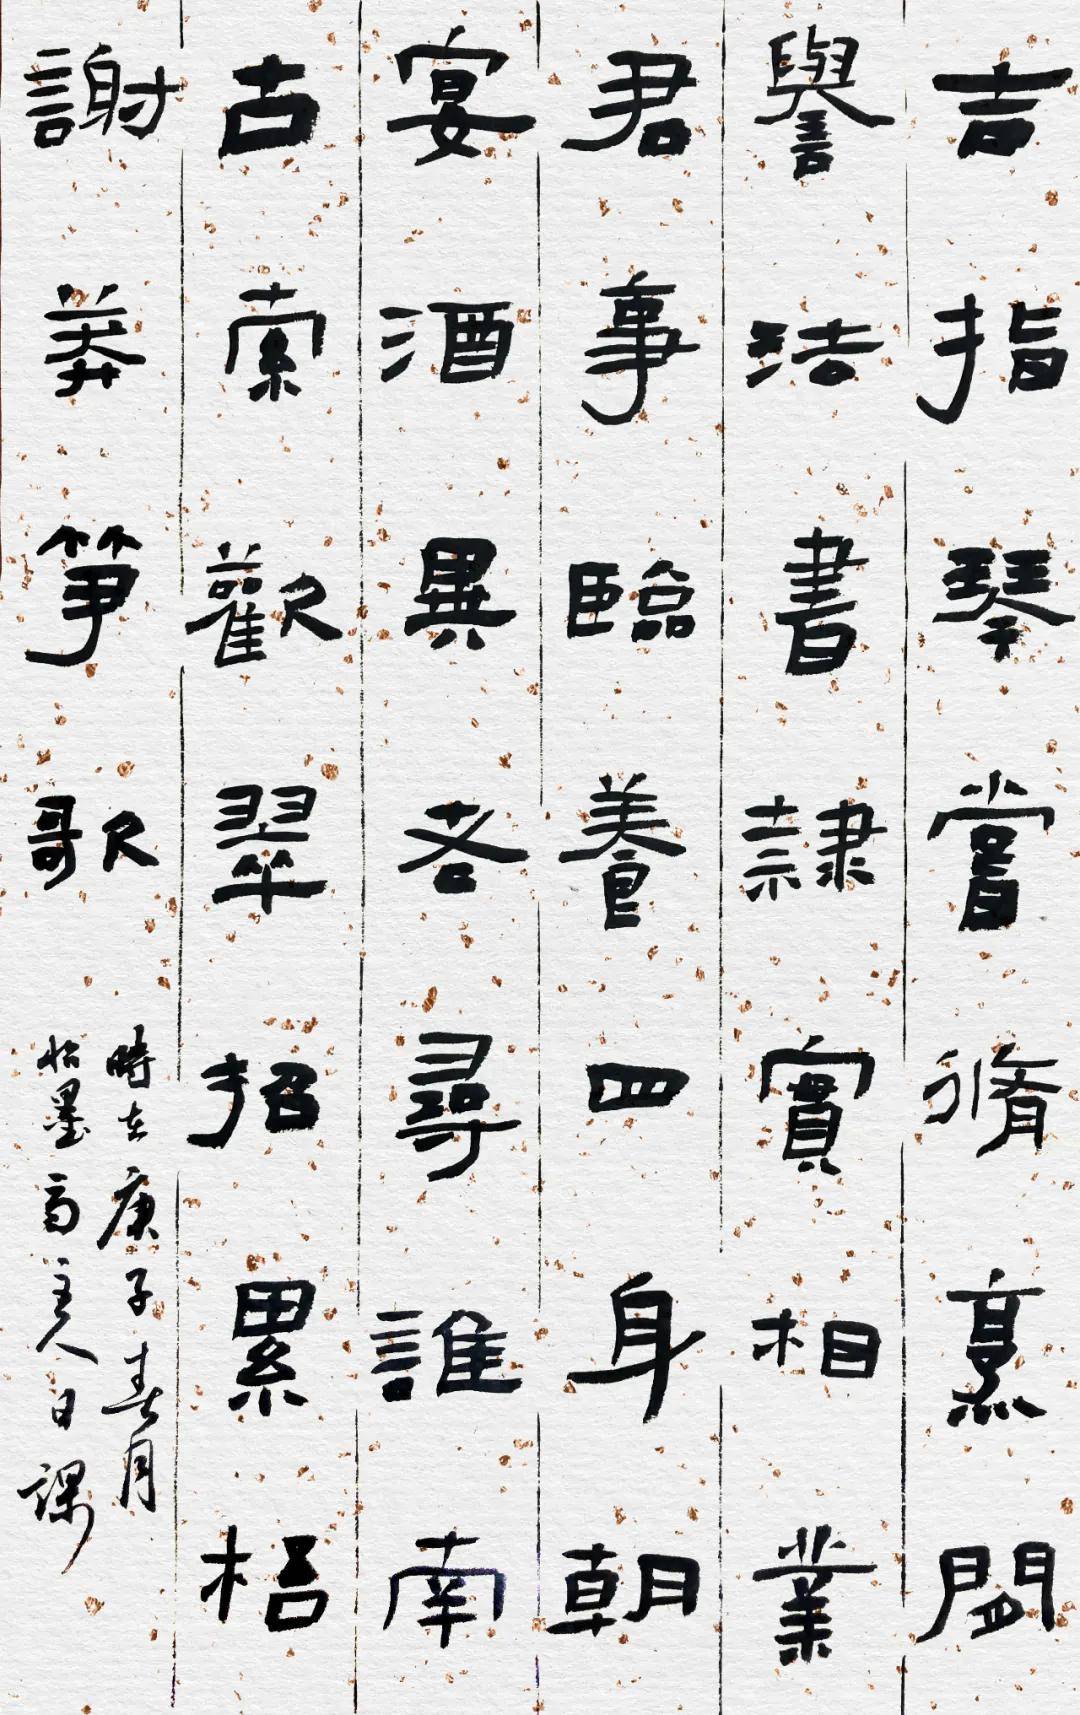 吉指琴嘗脩烹
譽法書隸實相業
君事臨養四身朝
宴酒異尋誰南
古索歡翠招累梧
謝莽筝歌
時在庚子春月
怡墨斋主人日課